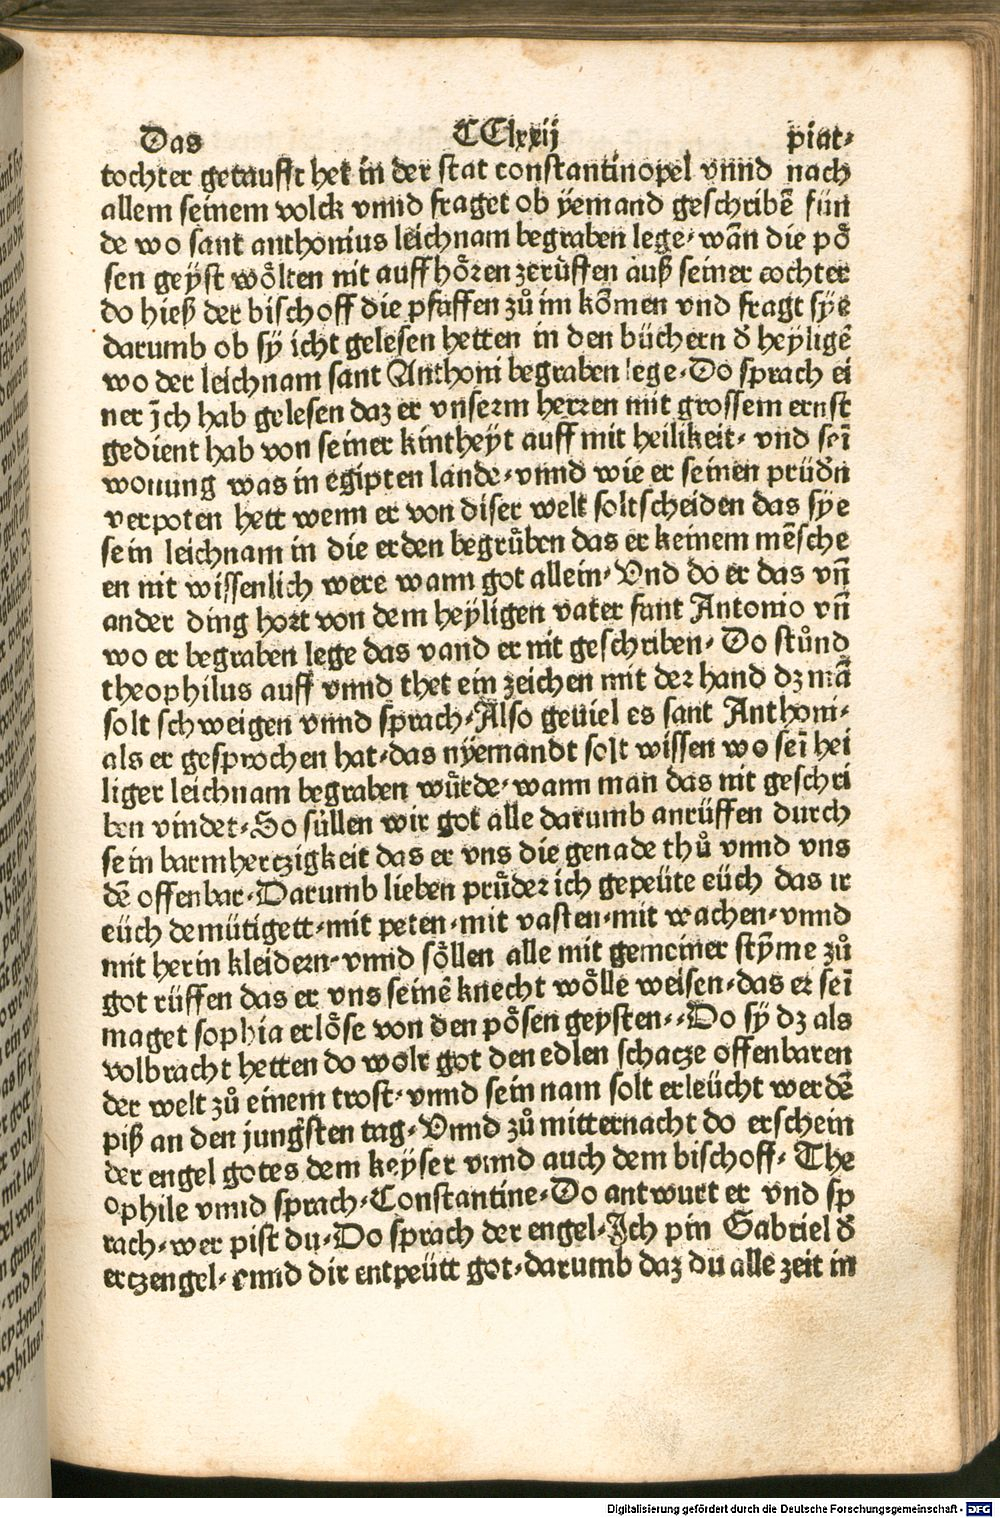 Das CClxxij plat-
tochter getaufft het in der stat constantinopel vnnd nach
allem seinem volck vnnd fraget ob yemand geschribē fün
de wo sant anthonius leichnam begraben lege·wān die pŏ
sen geÿst wŏlten nit auff hŏren zerüffen auß seiner tochter
do hieß der bischoff die pfaffen zů im kōmen vnd fragt sÿe
darumb ob sÿ icht gelesen hetten in den büchern đ heyligē
wo der leichnam sant Anthoni begraben lege·Do sprach ei
ner Ich hab gelesen daz er vnserm herren mit grossem ernst
gedient hab von seiner kintheÿt auff mit heilikeit· vnd seī
wonung was in egipten lande·vnnd wie er seinen prüdn
verpoten hett wenn er von diser welt solt scheiden das sÿe
sein leichnam in die erden begrůben das er keinem mēsche
en nit wissenlich were wann got allein· Vnd do er das vñ
ander ding hort von dem heÿligen vater sant Antonio vñ
wo er begraben lege das vand er nit geschriben· Do stůnd
theophilus auff vnnd thet ein zeichen mit der hand dz mā
solt schweigen vnnd sprach·Also geuiel es sant Anthoni·
als er gesprochen hat·das nÿemandt solt wissen wo seī hei
liger leichnam begraben wůrde·wann man das nit geschri
ben vindet·So süllen wir got alle darumb anrüffen durch
sein barmhertzigkeit das er vns die genade thů vnnd vns
dē offenbar·Darumb lieben průder ich gepeüte eüch das ir
eüch demütigett·mit peten·mit vasten·mit wachen·vnnd
mit herin kleidern·vnnd sŏllen alle mit gemeiner stȳme zů
got rüffen das er vns seinē knecht wŏlle weisen·das er seī
maget sophia erlŏse von den pŏsen geysten··Do sÿ dz als
volbracht hetten do wolt got den edlen schatze offenbaren
der welt zů einem trost·vnnd sein nam solt erleücht werdē
piß an den jungsten tag·Vnnd zů mitternacht do erschein
der engel gotes dem keÿser vnnd auch dem bischoff· The
ophile vnnd sprach·Constantine·Do antwurt er vnd sp
rach·wer pist du·Do sprach der engel·Ich pin Gabriel đ
ertzengel· vnnd dir entpeütt got·darumb daz du alle zeit in
Digitalisierung gefördert durch die Deutsche Forschungsgemeinschaft - DFG